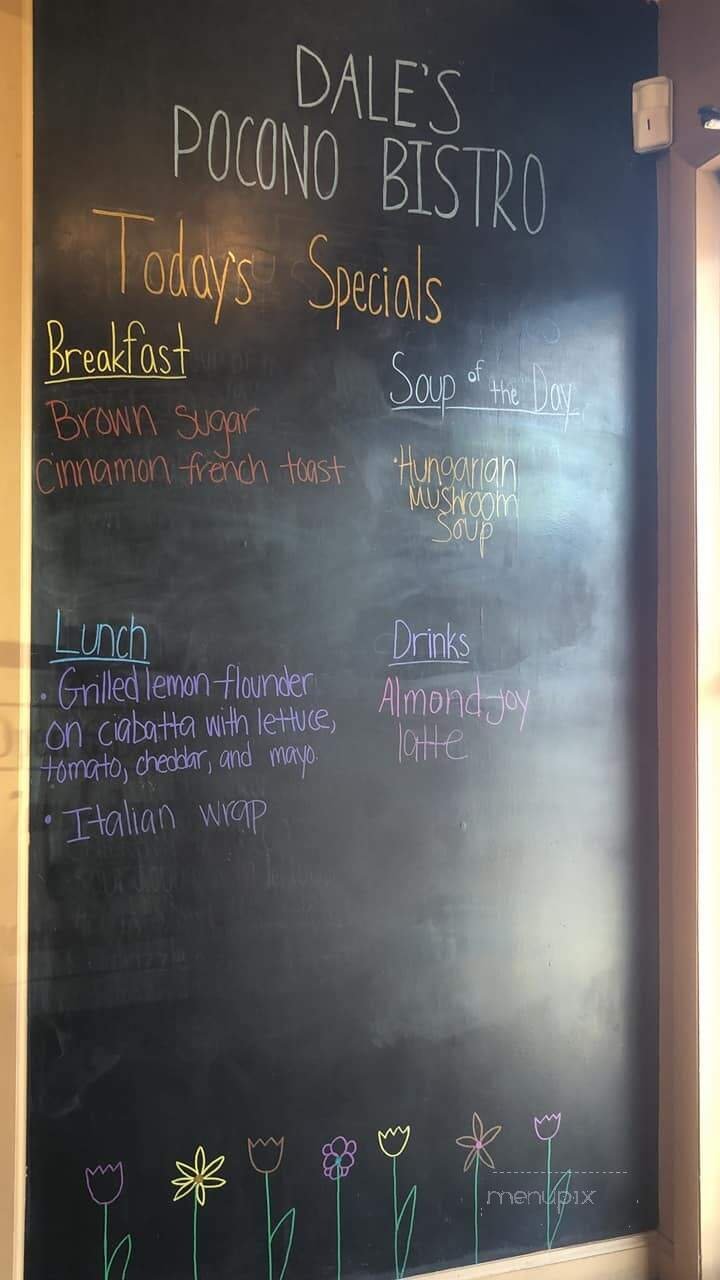 DALE'S
POCONO BISTRO
Today's Specials
Breakfast
Brown sugar
cinnamon french toast
Soup of the Day
• Hungarian
Mushroom
Soup
Lunch
• Grilled lemon flounder
on ciabatta with lettuce,
tomato, cheddar, and mayo.
• Italian wrap
Drinks
Almond joy
latte
menupix